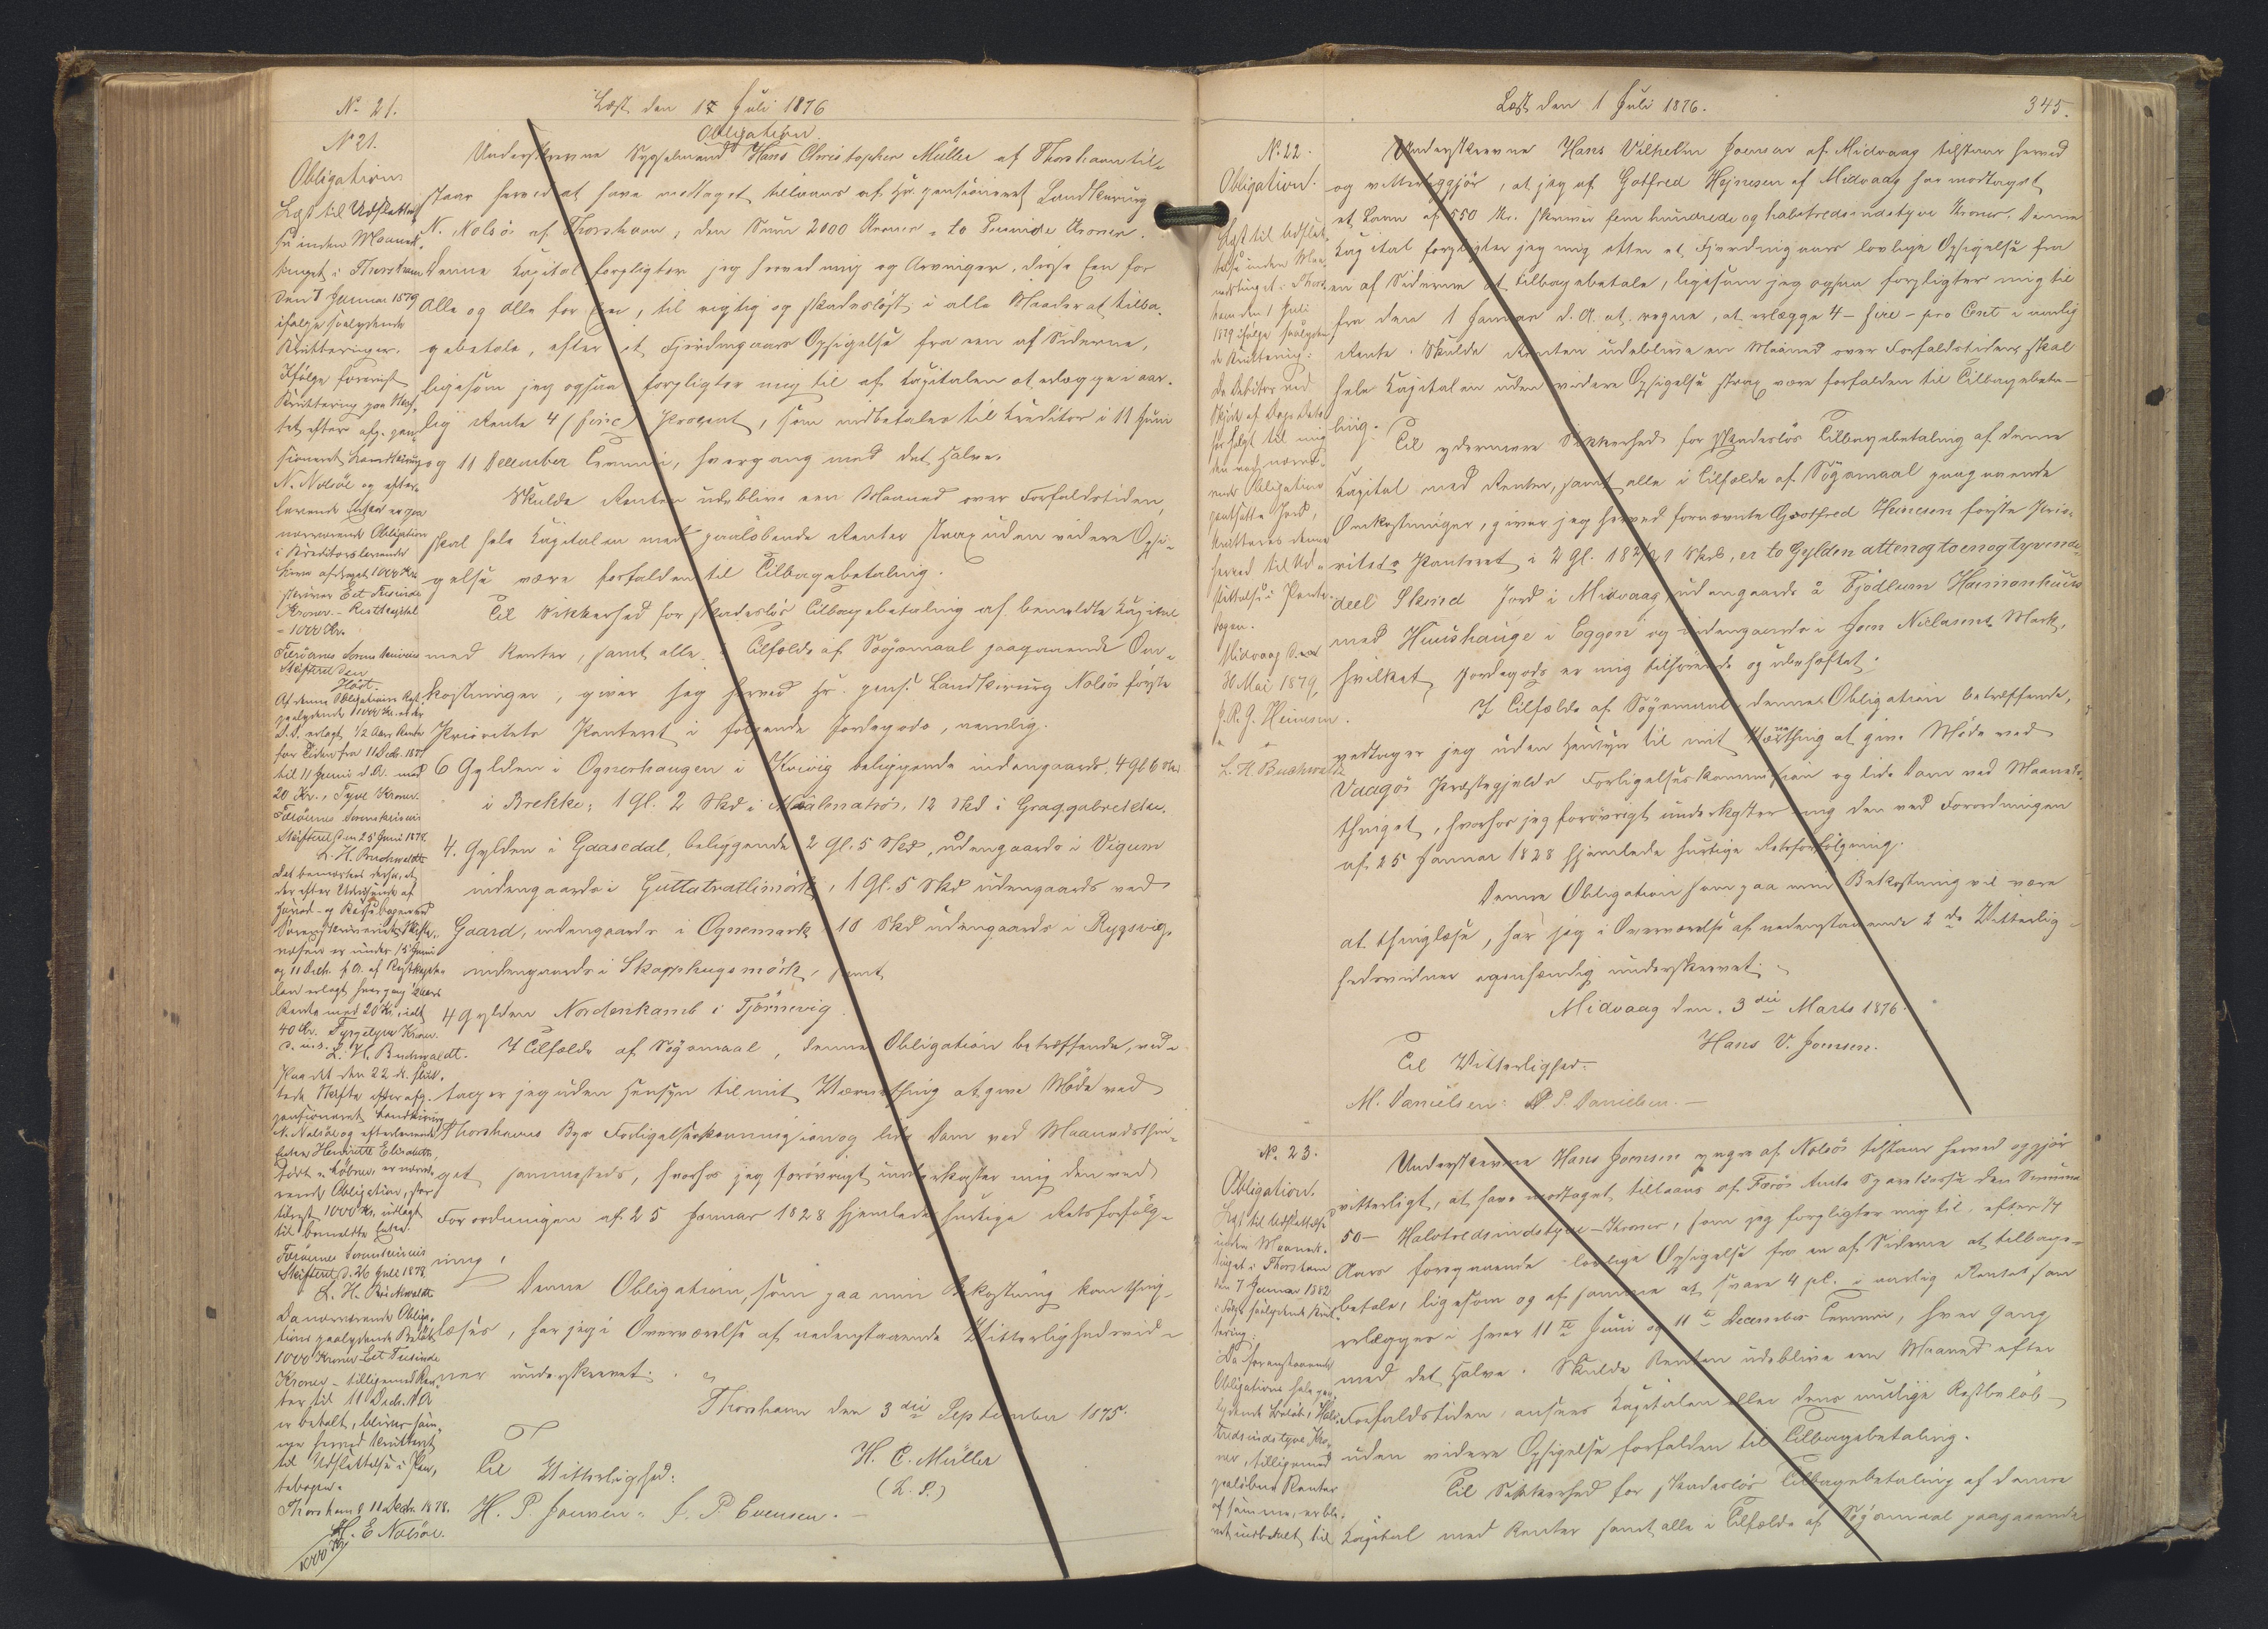 No. 21.
Læst den 17 Juli 1876
No 21.
Obligation
Læst til Udslettel-
se inden Maaneds-
tinget i Thorshavn
den 7 Januar 1879
ifølge saalydende
Kvitteringer.
Ifølge foranført
Kvittering paa Skif-
tet efter afg. pen-
sioneret Landkirurg
N. Nolsöe og efter-
levende Enke er paa
nærværende Obligation
i Kreditors levende
Live afdraget 1000 Kr.
skriver Eet Tusinde
Kroner. - Restkapital
= 1000 Kr.
Færöernes Sorenskriveri
Skifteret den
Höst.
Af denne Obligations Rest-
paalydende 1000 Kr. er der
D.D. erlagt 1/2 Aars Rente
for Tiden fra 11 Decb. 1877
til 11 Juni d.A. med
20 Kr., Tyve Kroner.
Færöernes Sorenskriveris
Skifteret den 25 Juni 1878.
L. H. Buchwaldt
Det bemærkes derhos, at
der efter Udvisende af
Sorenskriveriets Skifte-
væsen er under 15 Juni
og 11 Decb. f.A. af Restkapita-
len erlagt hver gang 1/2 Aars
Rente med 20 Kr., ialt
40 Kr. Fyrgetyve Kroner.
D. u. s. L. H. Buchwaldt.
Paa det den 22 ds. slut-
tede Skifte efter afg.
pensioneret Landkirurg
N. Nolsöe og efterlevende
Enke Henriette Elisabeth,
født Löbner, er nærvæ-
rende Obligation, stor
tilrest 1000 Kr. udlagt
til bemeldte Enke.
Færöernes Sorenskriveris
Skifteret d. 26 Juli 1878.
L. H. Buchwaldt
Da nærværende Obliga-
tions paalydende Beløb
1000 Kroner Eet Tusinde
Kroner - tilligemed Ren-
ter til 11 Decb. d.A.
er betalt, bliver sam-
me herved kvitteret
til Udslettelse i Pan-
tebogen.
Thorshavn d. 11 Decbr. 1878.
H. E. Nolsöe.
1000 Kr
Obligation
Underskrevne Sysselmand Hans Christopher Müller af Thorshavn til-
staar herved at have modtaget tillaans af Hr. pensioneret Landkirurg
N. Nolsöe af Thorshavn, den Sum 2000 Kroner = to Tusinde Kroner.
Denne Kapital forpligter jeg herved mig og Arvinger, disse Een for
Alle og Alle for Een, til rigtig og skadesløst i alle Maader at tilba-
gebetale, efter et Fjerdingaars Opsigelse fra een af Siderne,
ligesom jeg ogsaa forpligter mig til af Kapitalen at erlægge i aar-
lig Rente 4 (fire) Procent, som indbetales til Kreditor i 11 Juni
og 11 December Termin, hvergang med det Halve.
Skulde Renten udeblive een Maaned over Forfaldstiden,
skal hele Kapitalen med paaløbende Renter strax uden videre Opsi-
gelse være forfalden til Tilbagebetaling.
Til Sikkerhed for skadesløs Tilbagebetaling af bemeldte Kapital
med Renter, samt alle i Tilfælde af Søgsmaal paagaaende Om-
kostninger, giver jeg herved Hr. pens. Landkirurg Nolsöe første
Prioritets Panteret i følgende Jordegods, nemlig.
6 Gylden i Ognerhaugen i Kvivig beliggende indengaards, 4 Gl. 6 Skd
i Brekke; 1 Gl. 2 Skd i Maalmahós, 12 Skd i Graggabrekku.
4. Gylden i Gaasedal, beliggende 2 Gl. 5 Skd, udengaards i Vigum
indengaards i Guttatratlimørk, 1 Gl. 5 Skd udengaards ved
Gaard, indengaards i Ognemark 10 Skd udengaards i Rygsvig,
indengaards i Skarphugsmörk, samt
4 Gylden Nordenkamb i Tjörnevig.
I Tilfælde af Søgsmaal, denne Obligation betræffende, ved-
tager jeg uden Hensyn til mit Værnething at give Møde ved
Thorshavns Byes Forligelseskommission og lide Dom ved Maanedsthin-
get sammesteds, hvorhos jeg forøvrigt underkaster mig den ved
Forordningen af 25 Januar 1828 hjemlede hurtige Retsforfølg-
ning.
Denne Obligation, som paa min Bekostning kan thing-
læses, har jeg i Overværelse af nedenstaaende Vitterlighedsvid-
ner underskrevet.
Thorshavn den 3 die September 1875.
Til Vitterlighed:
H. C. Müller
(L. S.)
H. P. Jensen. J. P. Evensen.
Læst den 1 Juli 1876.
345.
No. 22.
Obligation.
Læst til Udslet-
telse inden Maa-
nedstinget i Thors-
havn den 1 Juli
1879 ifølge saalyden-
de Kvittering:
Da Debitor ved
Skjøde af Dags Dato
har solgt til mig
den ved nærvæ-
rende Obligation
pantsatte Jord,
kvitteres denne
herved til Ud-
slettelse i Pante-
bogen.
Midvaag den
30 Mai 1879,
J. R. G. Heinesen.
L. H. Buchwaldt
Underskrevne Hans Vilhelm Joensen af Midvaag tilstaar herved
og vitterliggjör, at jeg af Gotfred Hejnesen af Midvaag har modtaget
et Laan af 550 Kr. skriver fem hundrede og halvtredsindstyve Kroner. Denne
Kapital forpligter jeg mig efter et Fjerdingaars lovlige Opsigelse fra
en af Siderne at tilbagebetale, ligesom jeg ogsaa forpligter mig til
fra den 1 Januar d. A. at regne, at erlægge 4 - fire - pro Cent i aarlig
Rente. Skulde Renten udeblive en Maaned over Forfaldstiden skal
hele Kapitalen uden videre Opsigelse strax være forfalden til Tilbagebeta-
ling.
Til ydermere Sikkerhed for skadeslös Tilbagebetaling af denne
Kapital med Renter, samt alle i Tilfælde af Sögsmaal paagaaende
Omkostninger, giver jeg herved fornævnte Gootfred Heinesen förste Prio-
ritets Panteret i 2 Gl. 18 Skd, er to Gylden atten og toenogtyvende
deel Skind Jord i Midvaag, udengaards å Fjödlum Hamanhuus
med Huushauge i Eggen og indengaards i Joen Niclasens Mark,
hvilket Jordegods er mig tilhørende og ubehæftet.
I Tilfælde af Sögsmaal, denne Obligation betræffende,
vedtager jeg uden Hensyn til mit Værnething at give Møde ved
Vaagös Præstegjelds Forligelseskommission og lide Dom ved Maaneds-
thinget, hvorhos jeg forövrigt underkaster mig den ved Forordningen
af 25 Januar 1828 hjemlede hurtige Retsforfölgning.
Denne Obligation som paa min Bekostning vil være
at thinglæse, har jeg i Overværelse af nedenstaaende 2 de Vitterlig-
hedsvidner egenhændig underskrevet.
Midvaag den. 3 die Marts 1876.
Hans V. Joensen.
Til Vitterlighed.
M. Danielsen. P. Danielsen.
No. 23.
Obligation.
Læst til Udslettelse
inden Maaneds-
tinget i Thorshavn
den 7 Januar 1882
ifølge saalydende Kvit-
tering:
Da foranstaaende
Obligations hele paa-
lydende Beløb, Halv-
tredsindstyve Kro-
ner, tilligemed
paaløbne Renter
af samme, er ble-
vet indbetalt til
Underskrevne Hans Joensen yngre af Nolsö tilstaar herved og gjör
vitterligt, at have modtaget tillaans af Færö Amts Sparekasse den Summa
50 - Halvtredsindstyve - Kroner, som jeg forpligter mig til, efter 1/4
Aars foregaaende lovlige Opsigelse fra en af Siderne at tilbage-
betale, ligesom og af samme at svare 4 pC. i aarlig Rente som
erlægges i hver 11 te Juni og 11 te December Termin, hver Gang
med det Halve. Skulde Renten udeblive een Maaned efter
Forfaldstiden, ansees Kapitalen eller dens mulige Restbelöb
uden videre Opsigelse forfalden til Tilbagebetaling.
Til Sikkerhed for skadeslös Tilbagebetaling af denne
Kapital med Renter samt alle i Tilfælde af Sögsmaal paagaaende